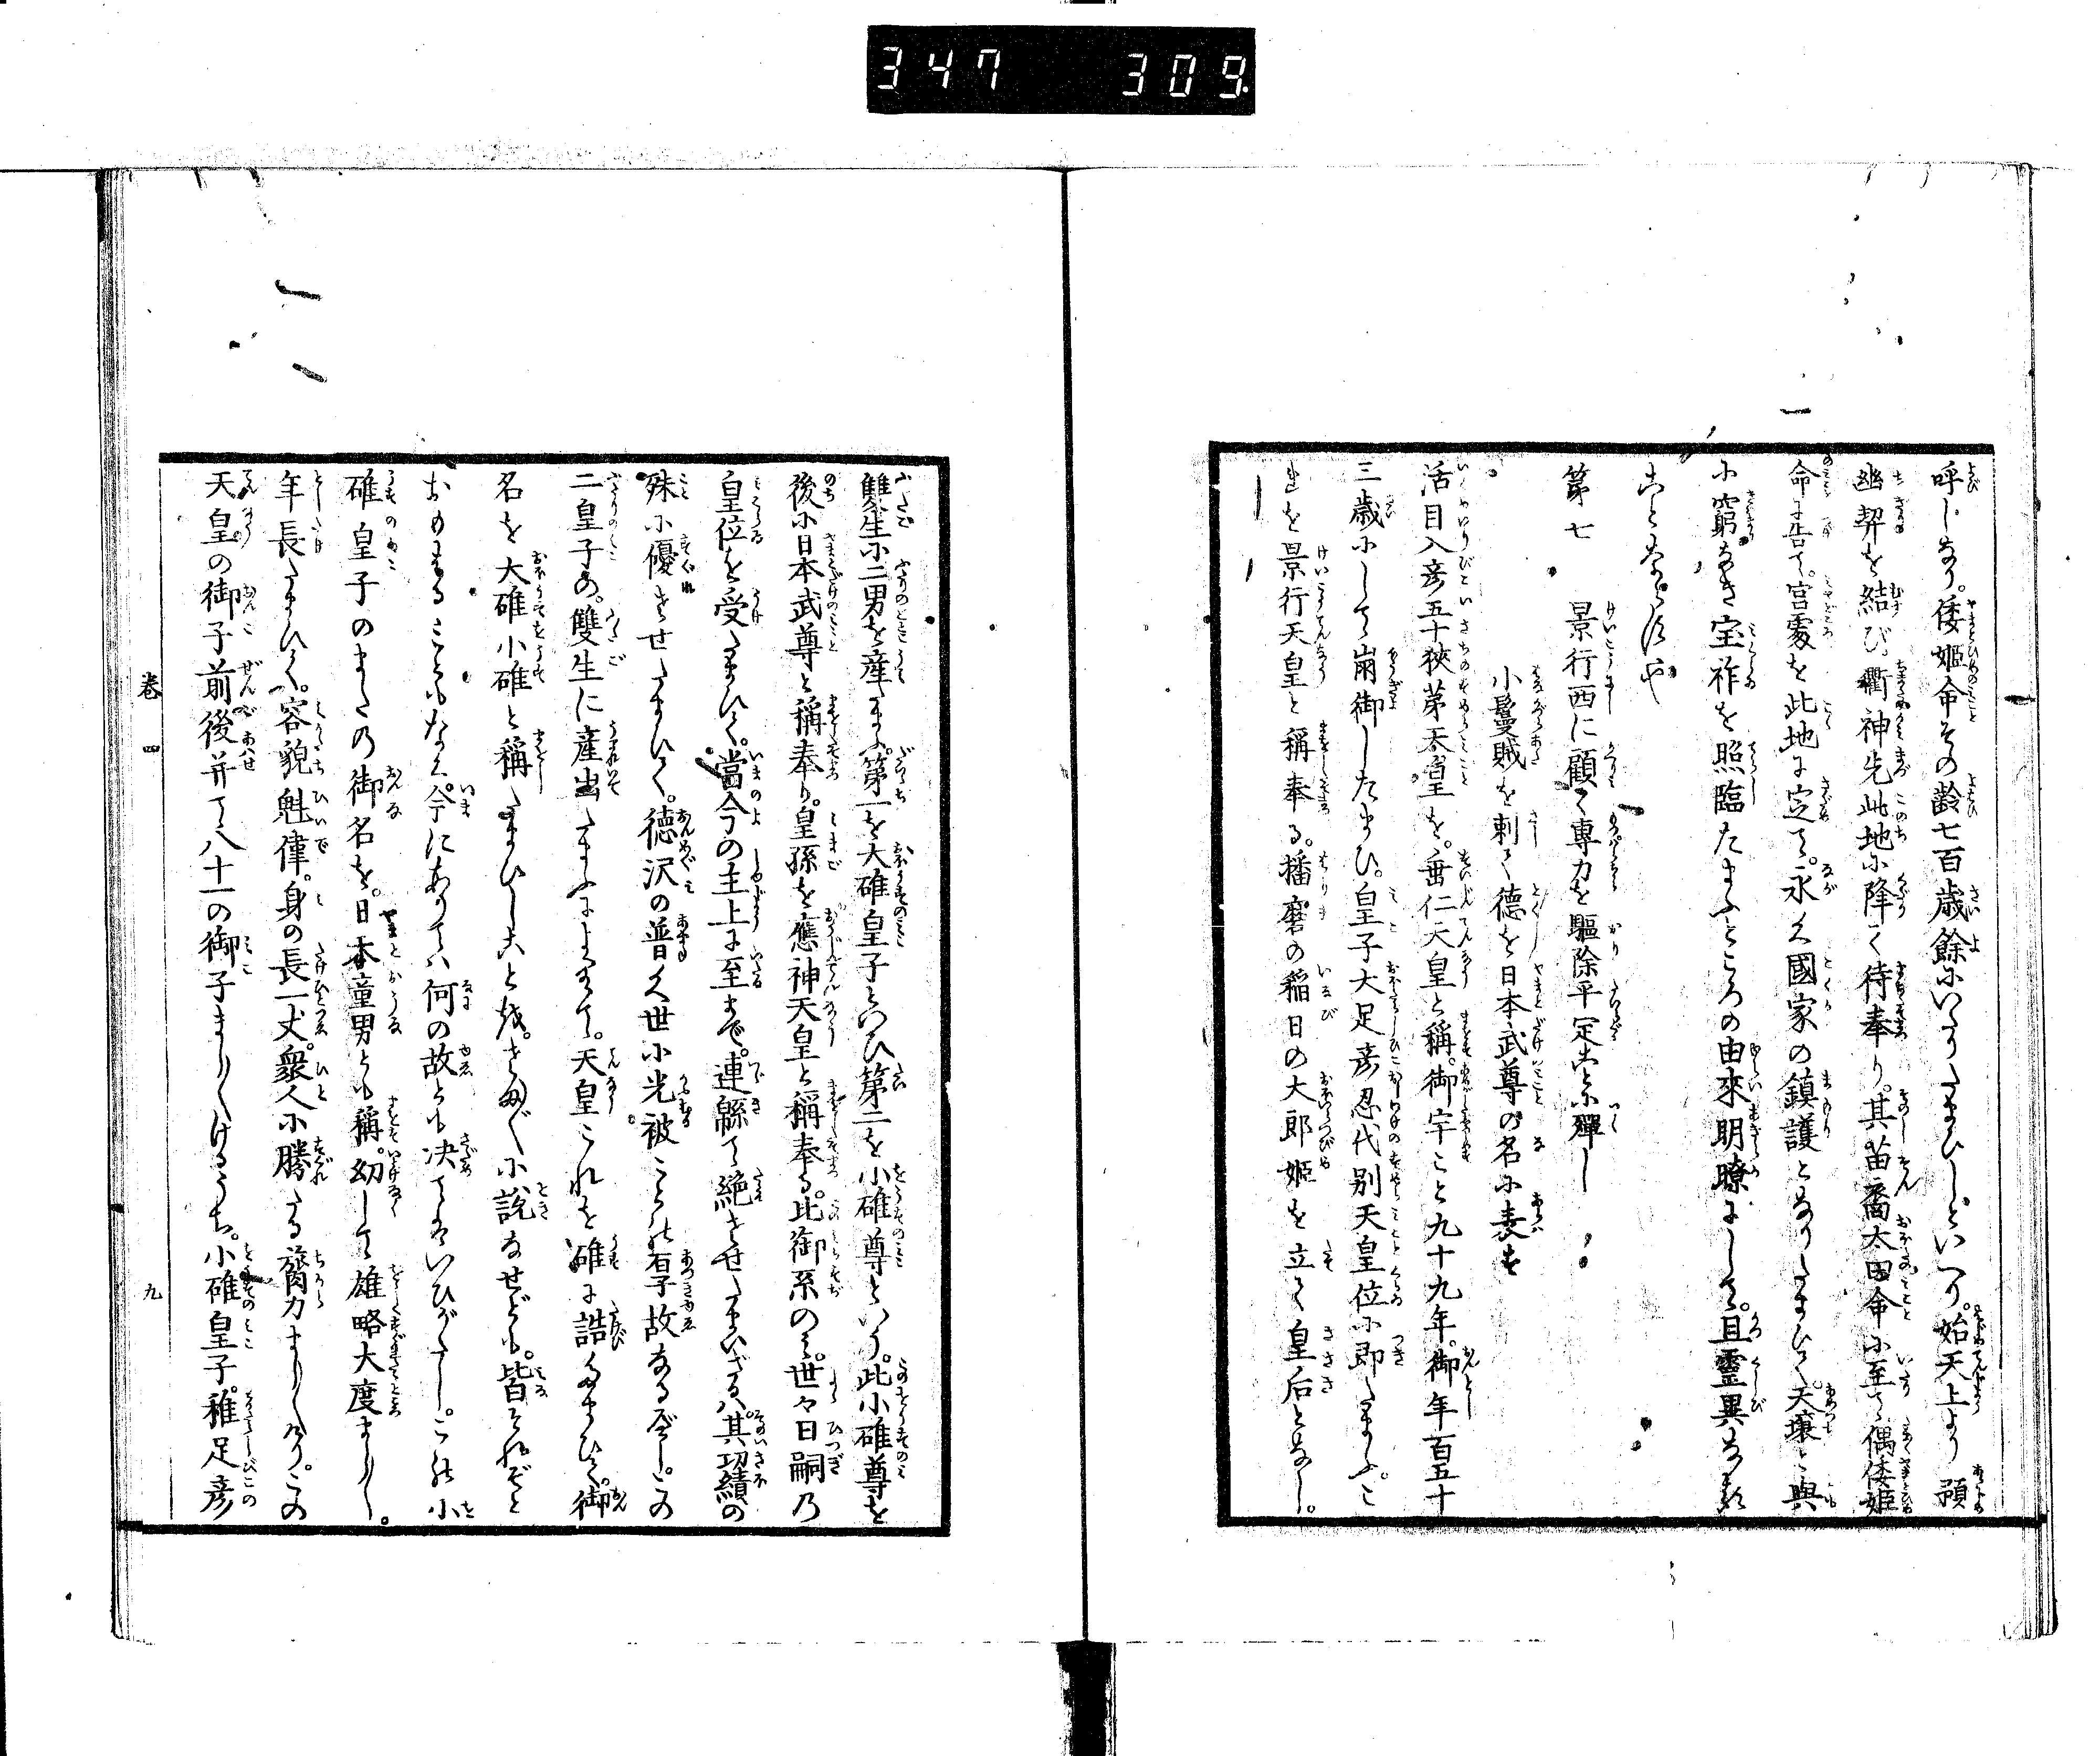 347 309
呼しなり。倭姫命その齢七百歳餘にいたりたまひしといへり。始天上より預
幽契を結び衢神先此地に降りて待奉り。其苗裔太田命に至て偶倭姫
命に告て。宮處を此地に定て。永く國家の鎮護となりたまひて天壌と與
に窮なき宝祚を照臨たまふところの由來明瞭にして。且霊異なる
ことならずや
第七 景行西に顧て專力を驅除平定ことに殫し
小鬘賊を刺て徳を日本武尊の名に表す
活目入彦五十狹茅太皇を。垂仁天皇と稱。御宇こと九十九年。御年百五十
三歳にして崩御したまひ。皇子大足彦忍代別天皇位に即たまふ。こ
れを景行天皇と稱奉る。播磨の稲日の大郎姫を立て皇后となし。
雙生に二男を産ます。第一を大碓皇子といひ第二を小碓尊といふ。此小碓尊を
後に日本武尊と稱奉り。皇孫を應神天皇と稱奉る。此御系のみ。世々日嗣の
皇位を受たまひて。當今の主上に至まで。連緜て絶させたまいざるハ。其功績の
殊に優させたまひて。徳沢の普く世に光被ことの有る故なるべし。この
二皇子の。雙生に産出たまふによりて。天皇これを碓に誥たまひて。御
名を大碓小碓と稱たまひしことぞ。さま〴〵に説なせども。皆それぞと
おもはることもなく。今にありてハ何の故とも決ていひがたし。この小
碓皇子のまたの御名を。日本童男とも稱。幼して雄略大度まし〳〵。
年長たまひて。容貌魁偉。身の長一丈。衆人に勝たる膂力まし〳〵けり。この
天皇の御子前後并て八十一の御子まし〳〵けるうち。小碓皇子。稚足彦
巻四 九